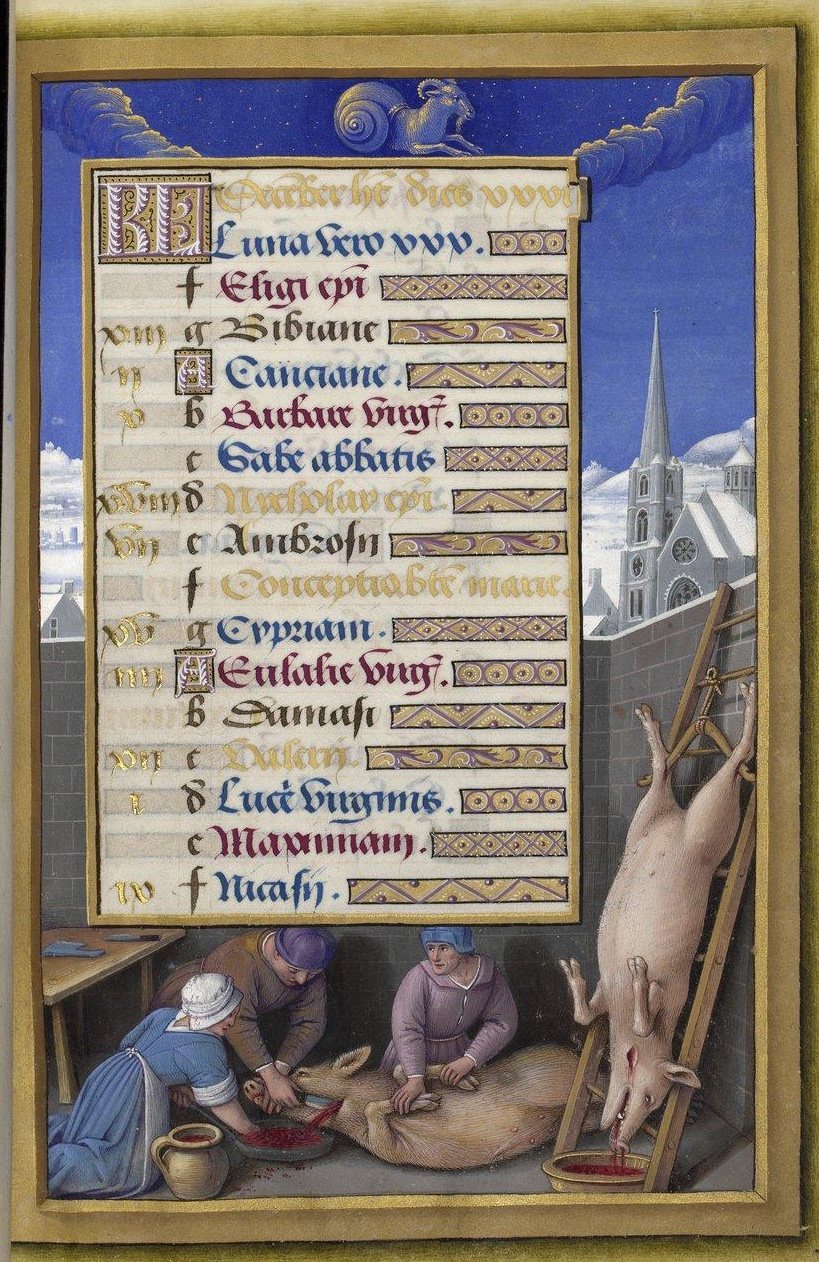 KL Decēber ht̄ dies xxxi
Luna vero xxx.
f Eligi ep̄i
xiii g Bibiane
ii A Canciane.
x b Barbare virḡ.
c Sabe abbatis
xviii d Nicholay ep̄i.
vii e Ambrosii
f Conceptio btē marie.
xv g Cypriani.
iiii A Eulalie virḡ.
b Damasi
xii c Valerii.
i d Lucē virginis.
e Maximiani.
ix f Nicasii.